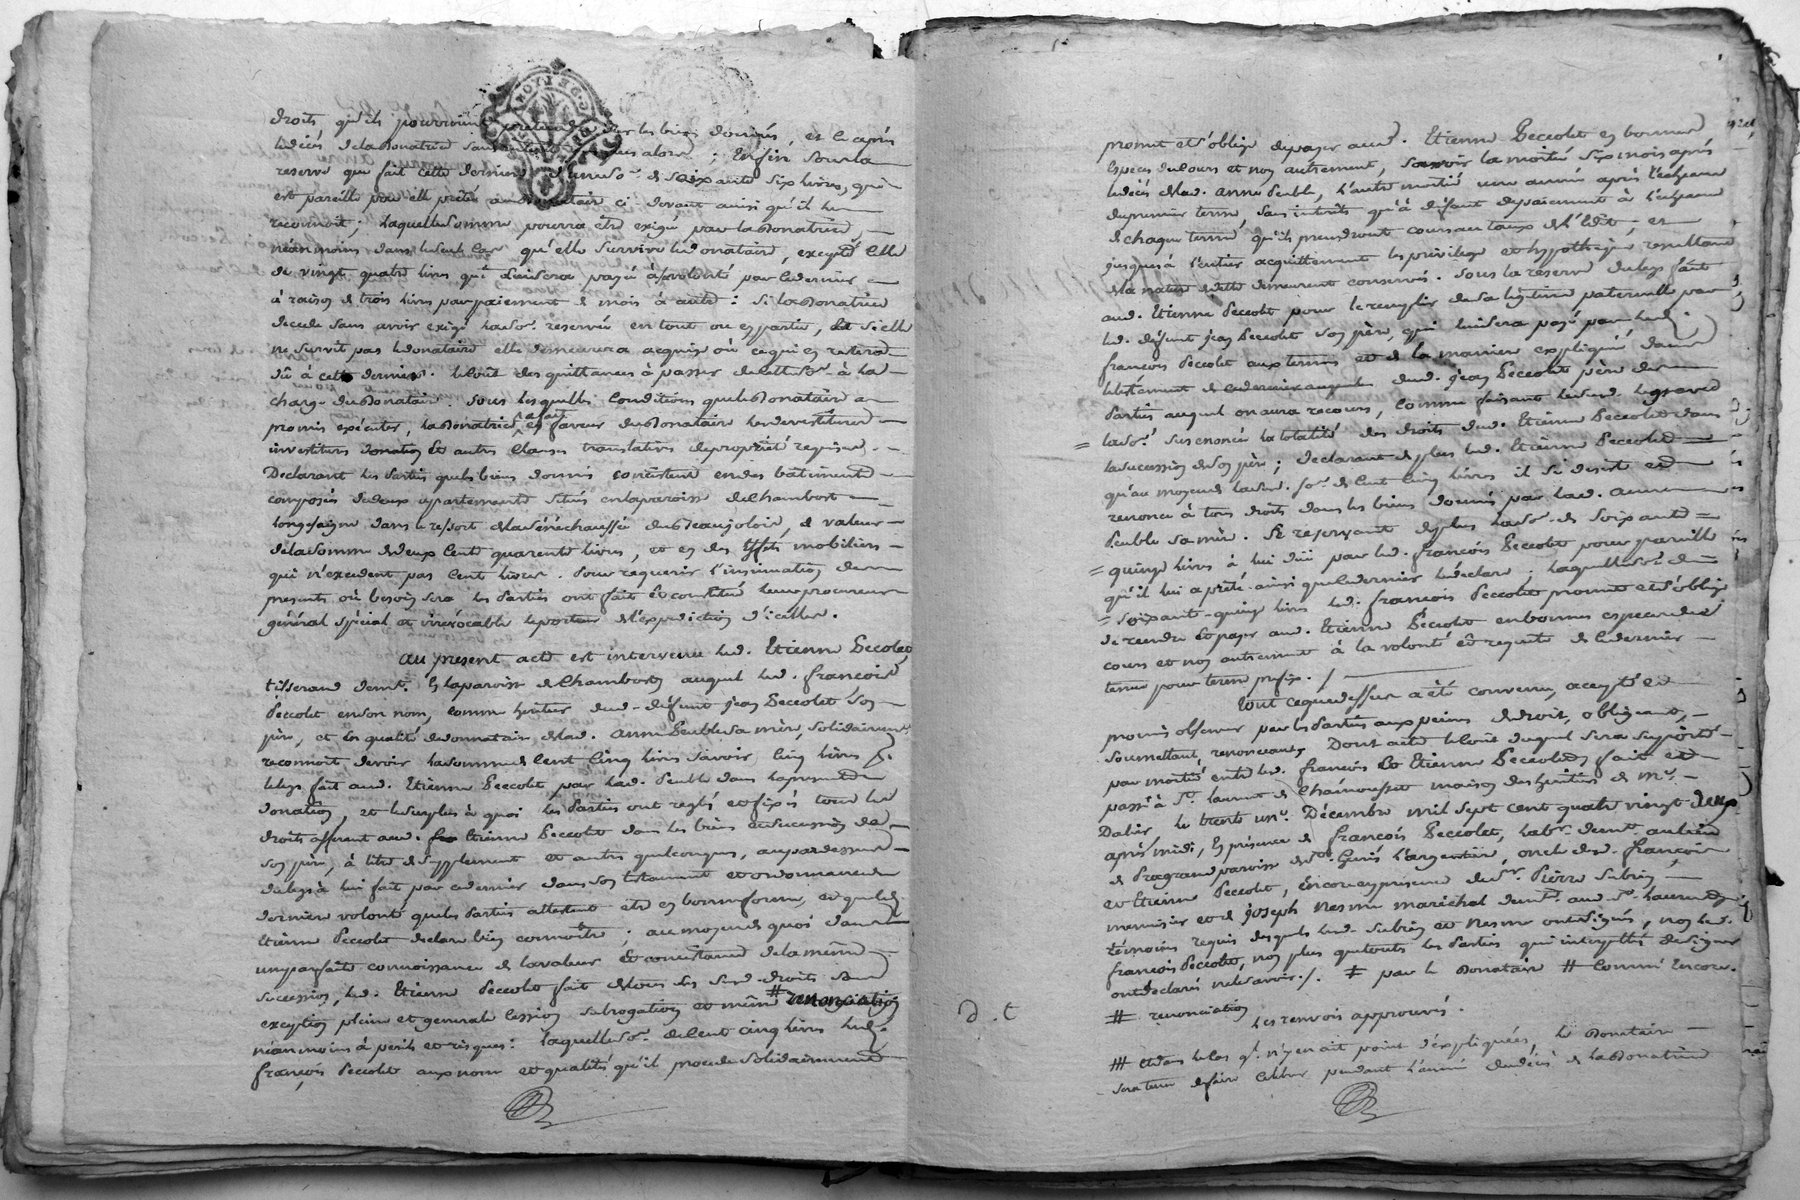 droits qu'ils pourroient pretendre sur les biens donnés, et le après
lediécés de la donatrice sans interets jusques alors ; Enfin sous la
reserve que fait cette derniere d'une so.e de soixante six livres, qui
est pareille par elle prêtée au donataire ci-devant ainsi qu'il le
reconnoit ; laquelle somme pourra etre exigée par la donatrice,
néanmoins dans le seul cas qu'elle survive le donataire, excepté celle
de vingt quatre livres qui lui sera payée à sa volonté par ce dernier
à raison de trois livres par paiement de mois à autre : si la donatrice
decede sans avoir exigé lad. so.e reservée en tout ou en partie, et si elle
ne survit pas le donataire elle demeurera acquise ou ce qui en restera
dû à cette dernier. le coût des quittances à passer de cette so.e à la
charge du donataire. sous lesquelles conditions que le donataire a
promis exécuter, la donatrice a fait en faveur du donataire les devestitures
investitures donation et autres clauses translatives de propriété requises.
Declarant les parties que les biens donnés consistent en des bâtiments
composés de deux appartements situés en la paroisse de Chambost
longesaigne dans le ressort de la sénéchaussée du Beaujolois, de valeur
de la somme de deux cent quarente livres, et en des effets mobiliers
qui n'excedent pas cent livres. Pour requerir l'insinuation des
presents où besoin sera les parties ont fait et constitué leur procureur
général spécial et irrévocable le porteur de l'expedition d'icelles.
au present acte est intervenu led. Etienne Peccolet
tisserand dem.t en la paroisse de Chambost auquel led. françois
Peccolet en son nom, comme heritier dud. défunt jean Peccolet son
père, et en qualité de donnataire de lad. anne Peuble sa mère, solidairem.t
reconnoit devoir la somme de cent cinq livres savoir cinq livres p.r
le legs fait aud. Etienne Peccolet par lad. Peuble dans la presente
donation, et le surplus à quoi les parties ont reglés et fixés tous les
droits afferant aud. Etienne Peccolet dans les biens et succession de
son père, à titre de supplement et autres quelconques, au par dessus
du legs à lui fait par ce dernier dans son testament et ordonnance de
derniere volonté que les parties attestent etre en bonne forme, et que led.
Etienne Peccolet declare bien connoître ; au moyen de quoi dans
une parfaite connoissance de la valeur et consistance de la même
sucession, led. Etienne Peccolet fait de tous les susd. droits sans
exception pleine et generale cession subrogation et même # renonciation
néanmoins à perils et risques : laquelle so.e de cent cinq livres led.
françois Peccolet aux noms et qualités qu'il procede solidairement
promet et s'oblige de payer aud. Etienne Peccolet en bonnes
especes de cours et non autrement, savoir la moitié six mois après
le décès de lad. anne Peuble, l'autre moitié une année après l'echeance
du premier terme, sans interêts qu'à défaut de paiement à l'echeance
de chaque terme qu'ils prendront cours au taux de l'Edit, et
jusques à l'entier acquittement les privilege et hypotheque resultant
de la nature de dette demeurent conservés. Sous la reserve du legs fait
aud. Etienne Peccolet pour le remplir de sa légitime paternelle par
led. défunt jean Peccolet son père, qui lui sera payé par led.
françois Peccolet aux termes et de la maniere expliquée dans
le testament de ce dernier auquel dud. jean Peccolet père des
Parties auquel on aura recours, comme faisant led.
la so.e susenoncée la totalité des droits dud. Etienne Peccolet dans
la sucession de son père ; declarant de plus led. Etienne Peccolet
qu'au moyen de lad. so.e de cent cinq livres il se desiste et
renonce à tous droits dans les biens donnés par lad. anne
Peuble sa mère. Se reservant de plus la so.e de soixante
quinze livres à lui due par led. françois Peccolet pour pareille
qu'il lui a prêté ainsi que ce dernier le déclare ; laquelle so.e de
soixante-quinze livres led. françois Peccolet promet et s'oblige
de rendre et payer aud. Etienne Peccolet en bonnes especes de
cours et non autrement à la volonté et requete de ce dernier
terme pour terme prefix. /
Tout ce que dessus a été convenu, accepté et
promis observer par les Parties aux peines de droit, obligeant,
soumettant, renonceant, Dont acte le coût duquel sera supporté
par moitié entre led. françois et Etienne Peccolet, fait et
passé à S.t laurent de Chamousset maison des héritiers de M.e
Dalin, le trente un.e Décembre mil sept cent quatre vingt deux
après midi, en présence de françois Peccolet, lab.r dem.t au lieu
de Progrand paroisse de S.t Genis l'argentière, oncle desd. françois
et Etienne Peccolet, encore en présence de s.r Pierre Subrin
menuisier et de joseph Nesme maréchal dem.t aud. S.t laurent
témoins requis desquels led. Subrin et Nesme ont signés, non led.
françois Peccolet, non plus que toutes les parties qui interpellés de signer
ont declarés ne le savoir. /. # par le donataire # comme encore.
# renonciation
les renvois approuvés.
# et dans le cas q.l n'y en ait point d'expliquées, le donataire
sera tenu de faire celebrer pendant l'année du décès de la donatrice
D.t